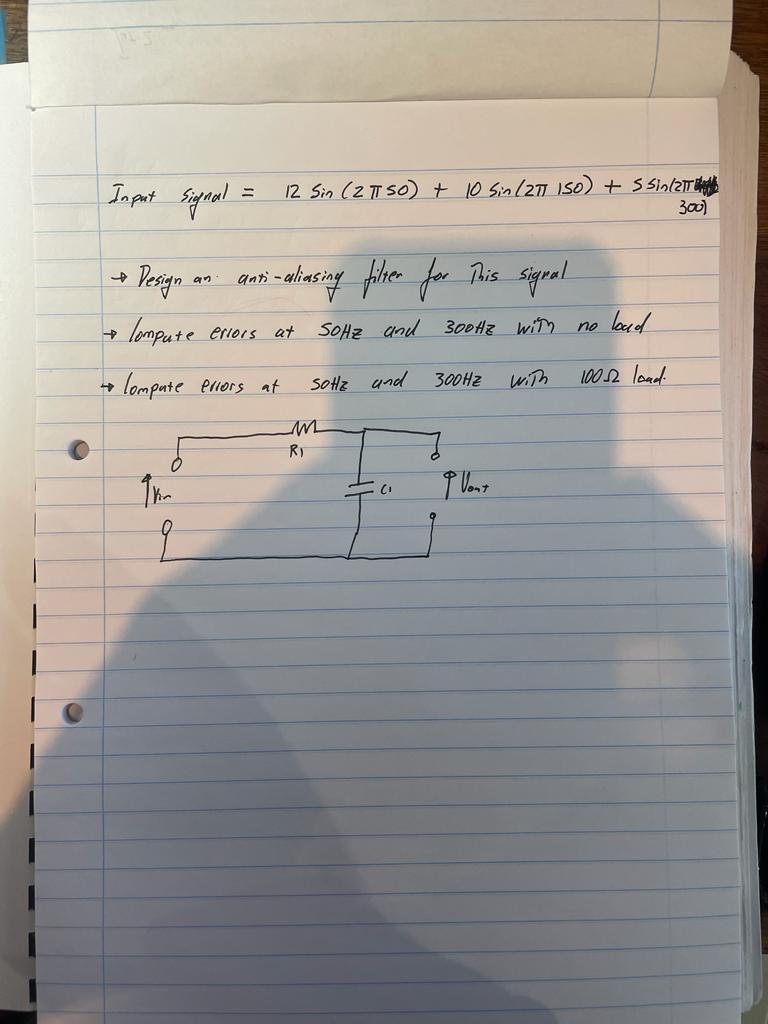 Input signal = 12 sin (2π50) + 10 sin(2π 150) + 5 sin(2π
300)
→ Design an anti-aliasing filter for This signal
→ Compute errors at 50Hz and 300Hz with no load
→ Compute errors at 50Hz and 300Hz with 100Ω load.
R1
Vin C1 Vout